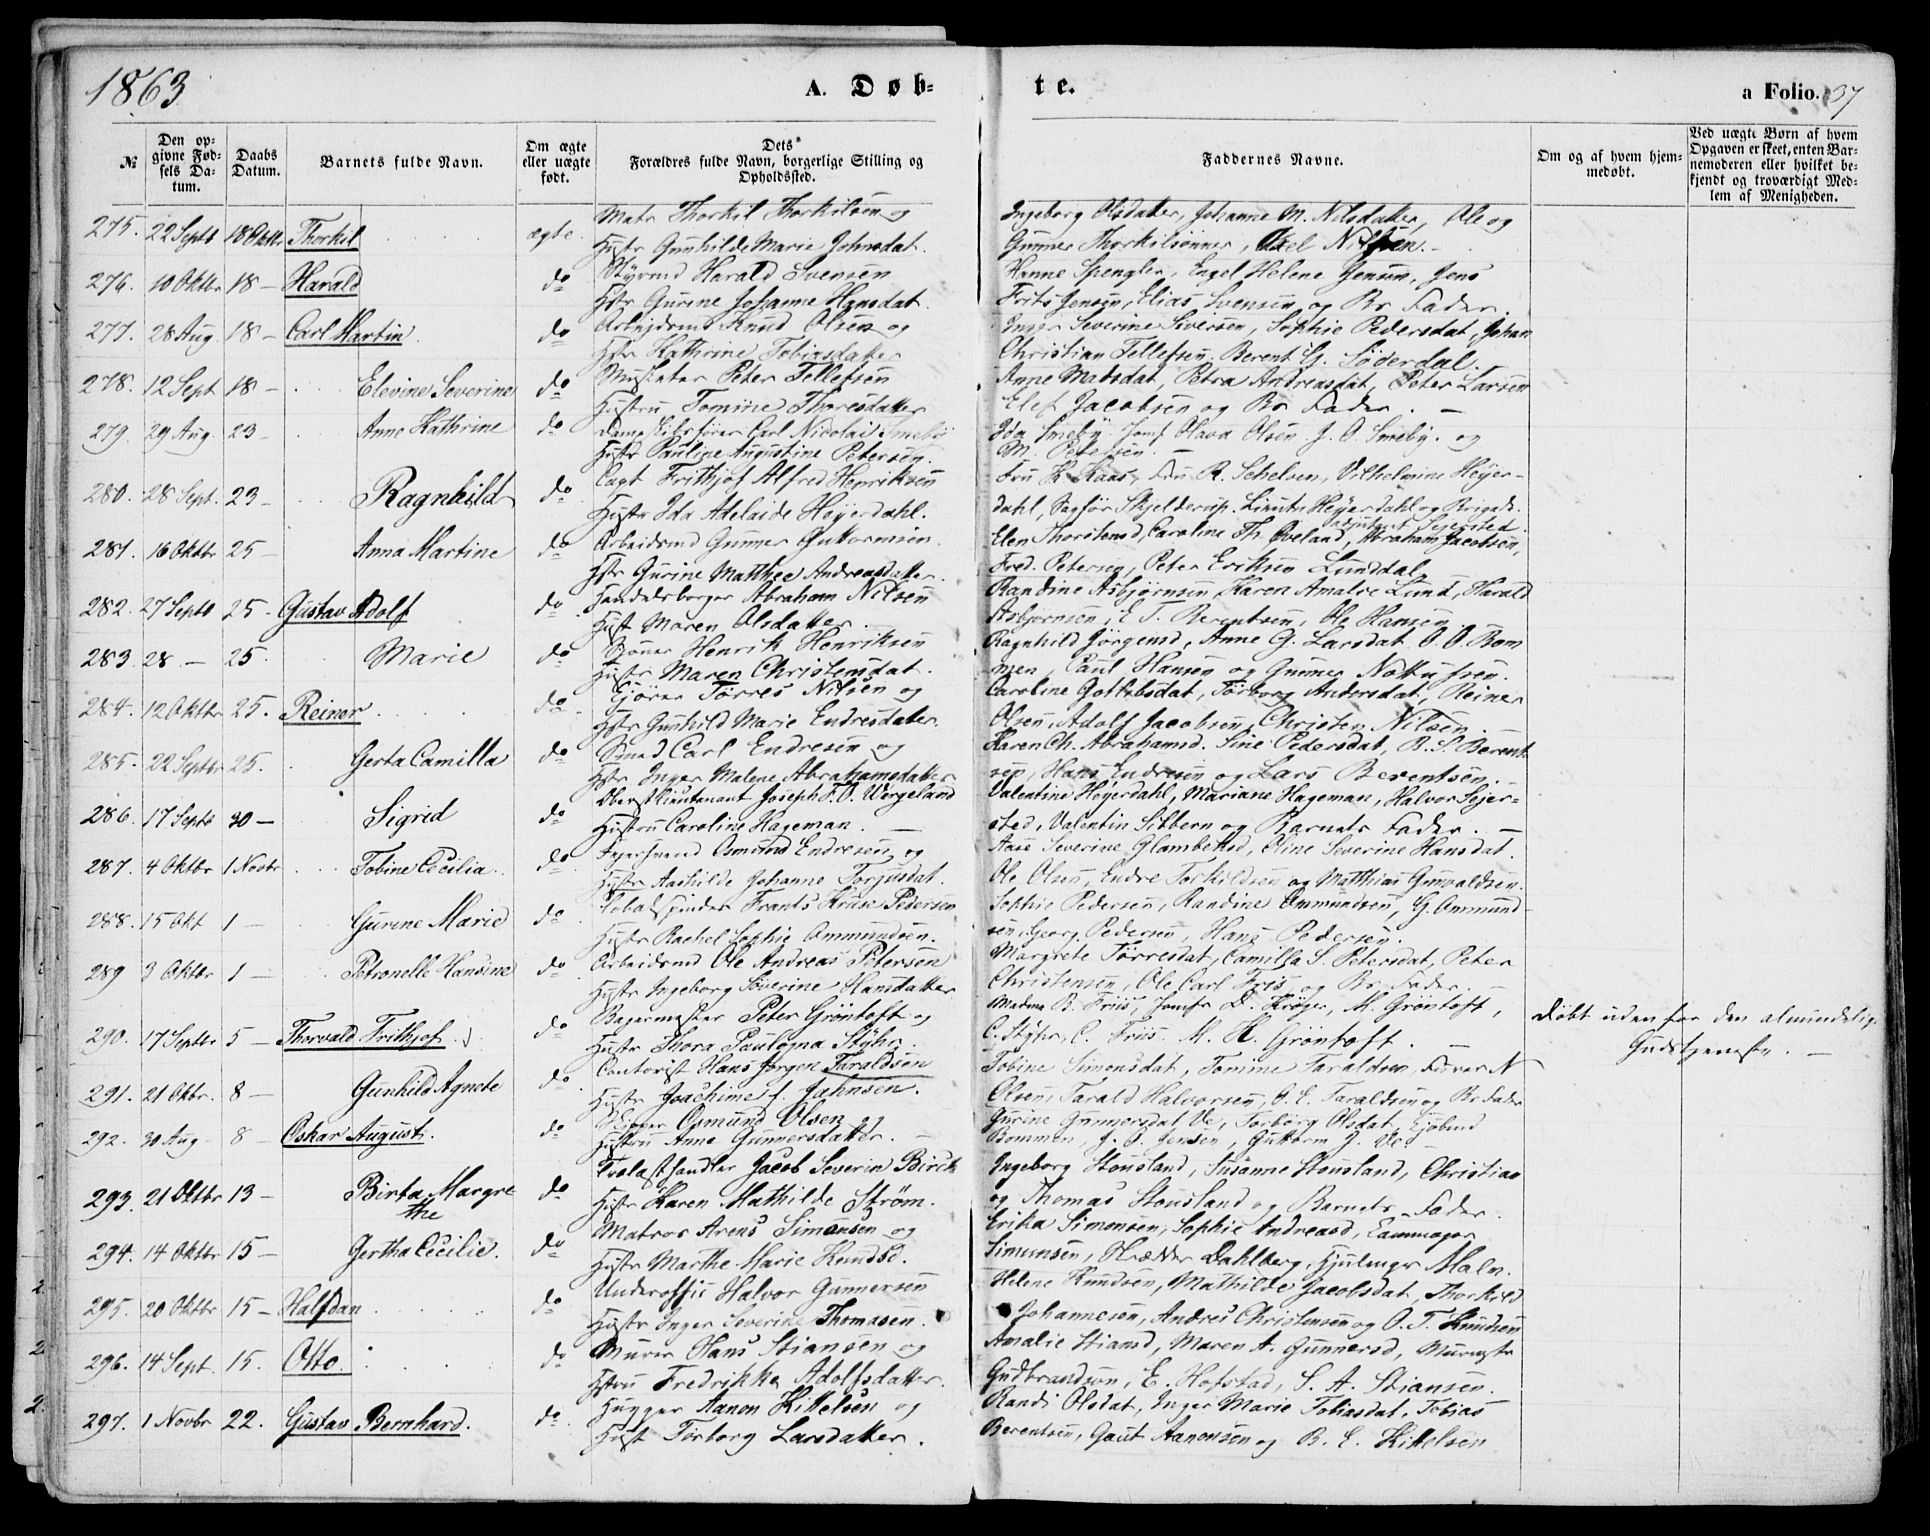 1863
A. Døb-
te.
a Folio. 37
№
Den op-
givne Fød-
sels Da-
tum.
Daabs
Datum.
Barnets fulde Navn.
Om ægte
eller uægte
født.
Dets
Forældres fulde Navn, borgerlige Stilling og
Opholdssted.
Faddernes Navne.
Om og af hvem hjem-
medøbt.
Ved uægte Børn af hvem
Opgaven er skeet, enten Bar-
nemoderen eller hvilket be-
kjendt og troværdigt Med-
lem af Menigheden.
275. 22 Septr 18 Oktbr. Thorkil ægte Matr Thorkil Thorkilsen og
Hustr Gunhilde Marie Johnsdat.
Ingeborg Olsdatter, Johanne M. Nilsdatter, Ole og
Gunner Thorkilsønner, Axel Nilsen.
276. 10 Oktbr 18 — Harald do Styrmd Harald Svensen
Hstr Gurine Johanne Hansdat.
Hanne Spengler, Engel Helene Jensen, Jens
Frits Jensen, Elias Svensen og Br Fader.
277. 28 Aug. 18 — Carl Martin do Arbejdsmd Knud Olsen og
Hstr Kathrine Tobiasdatter
Inger Severine Siversen, Sophie Pedersdat, Johan
Christian Tellefsen, Berent G. Søderdal.
278. 12 Sept 18 — Elevine Severine do Peter Tellefsen
Hustru Tomine Thoresdatter
Anne Madsdat, Petra Andreasdat, Peter Larsen
Elef Jacobsen og Br Fader. —
279. 29 Aug. 23 — Anne Kathrine do Dampskibsfører Carl Nicolai Smeby
Hustr Pauline Augustine Petersen.
Ida Smeby Jomf Hava Olsen. J. O. Smeby. og
M. Petersen. —
280. 28 Sept. 23 — Ragnhild do Capt Frithjof Alfred Henriksen
Hustr Ida Adelaide Heyerdahl.
Fru K Kaas, Fru R. Schelven, Vilhelmine Heyer-
dahl, Sagfør Skjelderup. Lieutn Heyerdahl og Brigade-
adjutant Sejersted.
281. 16 Oktbr 25 — Anna Martine do Arbeidsmd Gunner Guttormsen
Hstr Gurine Matthea Andreasdatter.
Elen Thorstensd, Caroline Th. Øveland, Abraham Jacobsen,
Fred. Petersen, Peter Eriksen Lunddal
282. 27 Septr 25 — Gustav Adolf do Handelsborger Abraham Nilsen
Hust Maren Olsdatter.
Randine Asbjørnsen, Karen Amalie Lund, Harald
Asbjørnsen, E T. Berentsen, Ole Hansen
283. 28 — 25. Marie do Henrik Henriksen
Hustr Maren Christensdat.
Ragnhild Jørgensd, Anne G. Larsdat O. O. Bom
men, Paul Hansen og Gunner
284. 12 Oktbr 25. Reiner do Tørres Nilsen og
Hstr Gunhild Marie Endresdatter.
Caroline Gotlibsdat, Torborg Andersdat, Reiner
Olsen, Adolf Jacobsen, Christen Nilsen. —
285. 22 Septbr 25. Gerta Camilla do Smed Carl Endresen og
Hstr Inger Malene Abrahamsdatter
Karen Ch. Abrahamsd. Sine Pedersdat, B. S. Berent
sen, Hans Endresen og Lars Berentsen.
286. 17 Septr 30 — Sigrid do Oberstlieutenant Joseph F. O. Wergeland
Hustru Caroline Hageman. —
Valentine Heyerdahl, Mariane Hageman, Halvor Sejer-
sted, Valentin Sibbern og Barnets Fader. —
287. 4 Oktbr 1 Novbr Tobine Cecilia do Osmund Endresen og
Hustr Aashilde Johanne Torjusdat.
Aase Severine Glambeksd, Oline Severine Hansdat.
Ole Olsen, Endre Torkildsen og Matthias Gunvaldsen.
288. 15 Okt 1 — Gurine Marie do Tobakspinder Frants Kruse Pedersen
Hustr Rachel Sophie Ommundsen.
Sophie Pedersen, Randine Ommundsen, G. Ommund-
sen, Georg Pedersen, Hans Pedersen.
289 3 Oktbr 1 — Petronelle Hansine do Arbeidsmd Ole Andreas Petersen
Hustr Ingeborg Severine Hansdatter
Margrete Tørresdat, Camilla S. Petersdat, Peter
Christensen, Ole Carl Friis og Br Fader. —
290. 17 Septbr 5 — Thorvald Frithjof do Bagermester Peter Gröntoft og
Hustr Thora Paulogna Stÿhr.
Madm B. Friis, Jomfr D. Krøger, M. Gröntoft,
C. Stÿhr, C. Friis. M. H. Gröntoft. —
Døbt udenfor den almindelige
Gudstjeneste. —
291. 21 Oktbr. 8 — Gunhild Agnete do Cantorist Hans Jørgen Taraldsen
Hustr Joachime f. Jahnsen.
Tobine Simonsdat, Tomine Taraldsen, N
Olsen, Tarald Halvorsen, O. E. Taraldsen og Br Fader
292. 30 Aug 8 — Oskar August. do Skipper Osmund Olsen og
Hustru Anne Gunnersdatter. —
Gurine Gunnersdat Ve, Torborg Olsdat, Ejvind
Bommen, J. S. Jensen, Guttorm J. Ve.
293. 21 Oktbr 13 — Birta Margre
the do Trælasthandler Jacob Severin Birch
Hustr Karen Mathilde Strøm.
Ingeborg Stousland, Susanne Stousland, Christian
og Thomas Stousland og Barnets Fader.
294. 14 Oktbr 15 — Gertha Cecilie. do Matros Arens Simonsen og
Hustr Marthe Marie Knudsd.
Erika Simonsen, Sophie Andreasd,
Simonsen, Dahlberg, Malm.
295. 20 Oktbr 15 — Halfdan do Underoffic Halvor Gunnersen
Hustr Inger Severine Thomasen.
Helene Knudsen, Mathilde Jacobsdat, Thorkild
Johannesen, Andres Christensen og O. T. Knudsen
296. 14 Sept. 15. Otto. do Murer Hans Stiansen og
Hstru Fredrikke Adolfsdatter.
Amalie Stiansd, Maren A. Gunnersd, Murmstr
Gudbrandson, E. Hofstad, S. A. Stiansen.
297. 1 Novbr 22. Gustav Bernhard. do Hugger Aanon Kittelsen og
Hust Torborg Larsdatter.
Randi Olsdat, Inger Marie Tobiasdat, Tobias
Berentsen, Gaut Aanonsen og B. E. Kittelsen